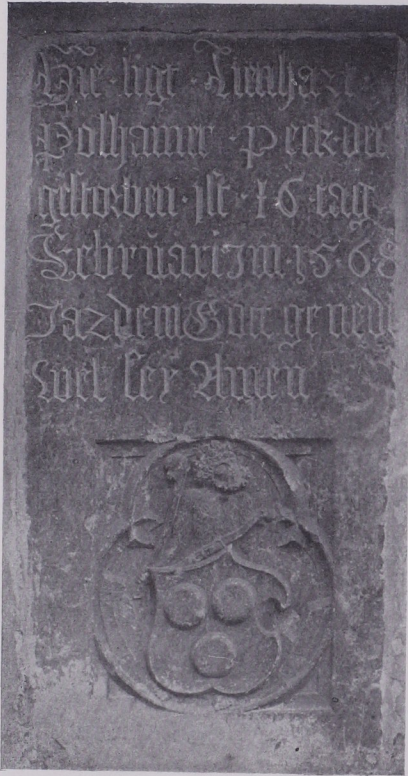 Hie · ligt · Lienhart ·
Polhamer · Peck · der
gestorben · ist · 16 · tag
Februari im · 15 · 68
Jar dem Gott genedi
wel sey Amen